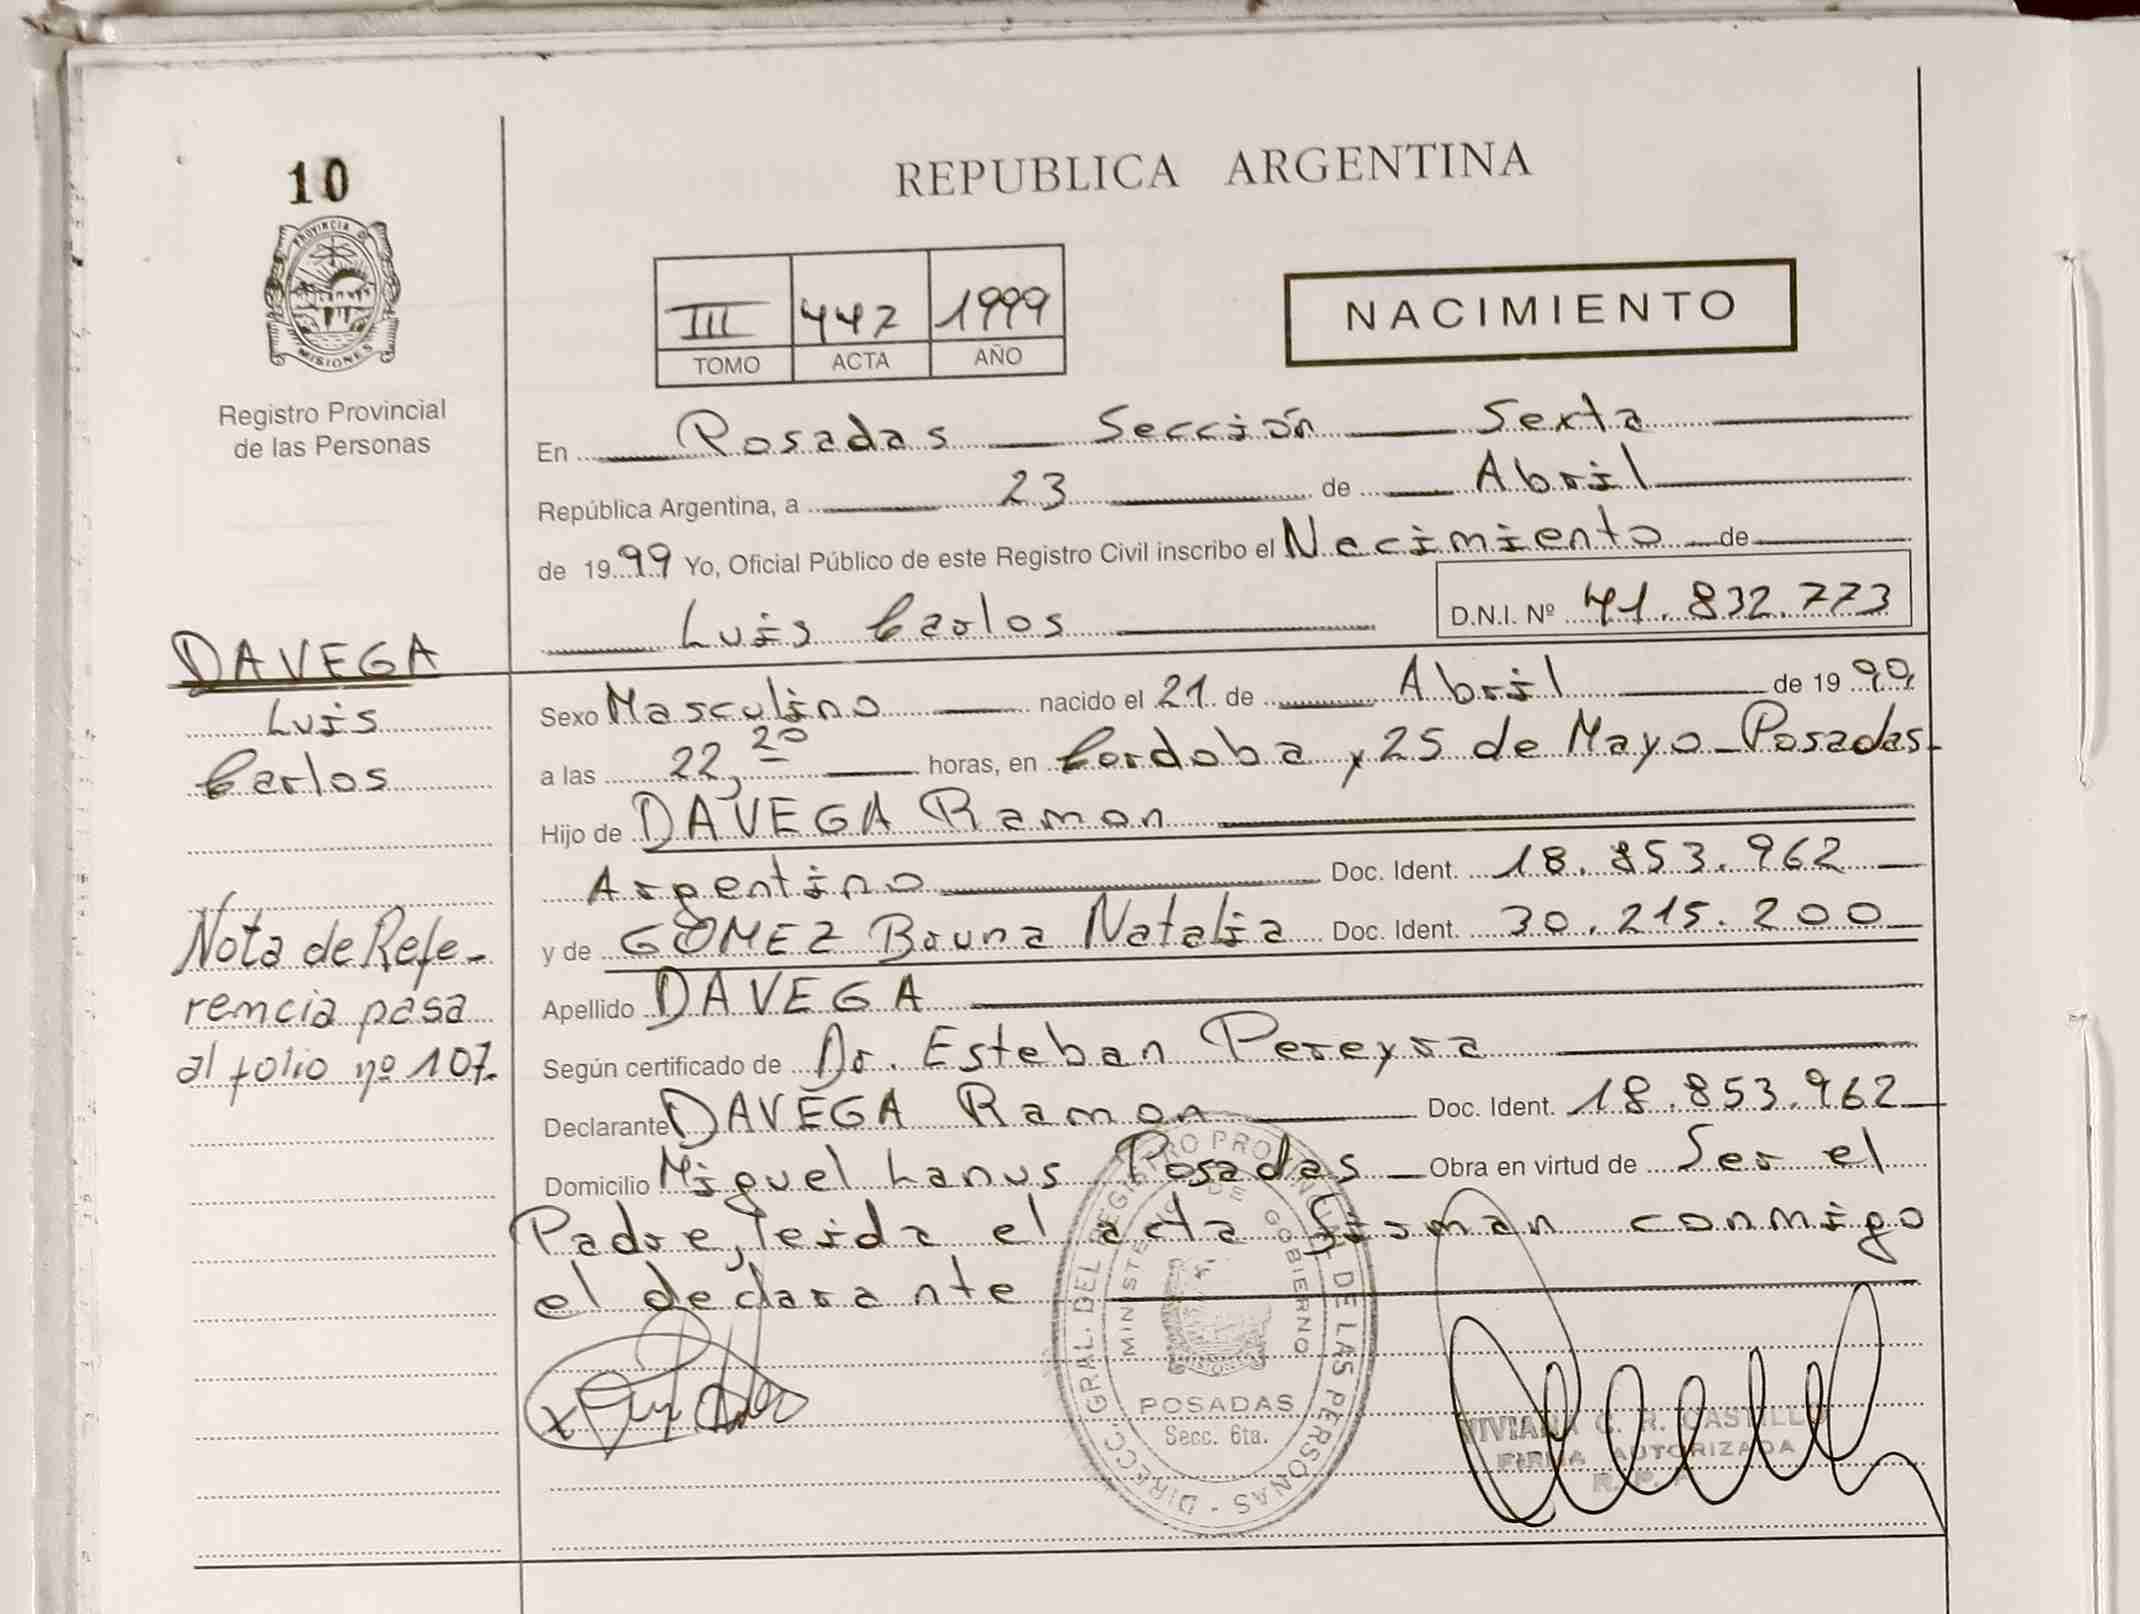 10
PROVINCIA DE
MISIONES
Registro Provincial
de las Personas
REPUBLICA ARGENTINA
III 442 1999
TOMO ACTA AÑO
NACIMIENTO
En Posadas Sección Sexta
República Argentina, a 23 de Abril
de 1999 Yo, Oficial Público de este Registro Civil inscribo el Nacimiento de
Luis Carlos D.N.I. Nº 41.832.773
DAVEGA
Luis
Carlos
Nota de Refe-
rencia pasa
al folio nº 107.
Sexo Masculino nacido el 21 de Abril de 1999
a las 22,20 horas, en Cordoba y 25 de Mayo - Posadas-
Hijo de DAVEGA Ramon
Argentino Doc. Ident. 18.853.962
y de GOMEZ Bruna Natalia Doc. Ident. 30.215.200
Apellido DAVEGA
Según certificado de Dr. Esteban Pereyra
Declarante DAVEGA Ramon Doc. Ident. 18.853.962
Domicilio Miguel Lanus Posadas - Obra en virtud de Ser el
Padre, leida el acta firman conmigo
el declarante
DIRECC. GRAL. DEL REGISTRO PROVINCIAL DE LAS PERSONAS -
MINISTERIO DE GOBIERNO
POSADAS
Secc. 6ta.
VIVIANA C. R. CASTILLO
FIRMA AUTORIZADA